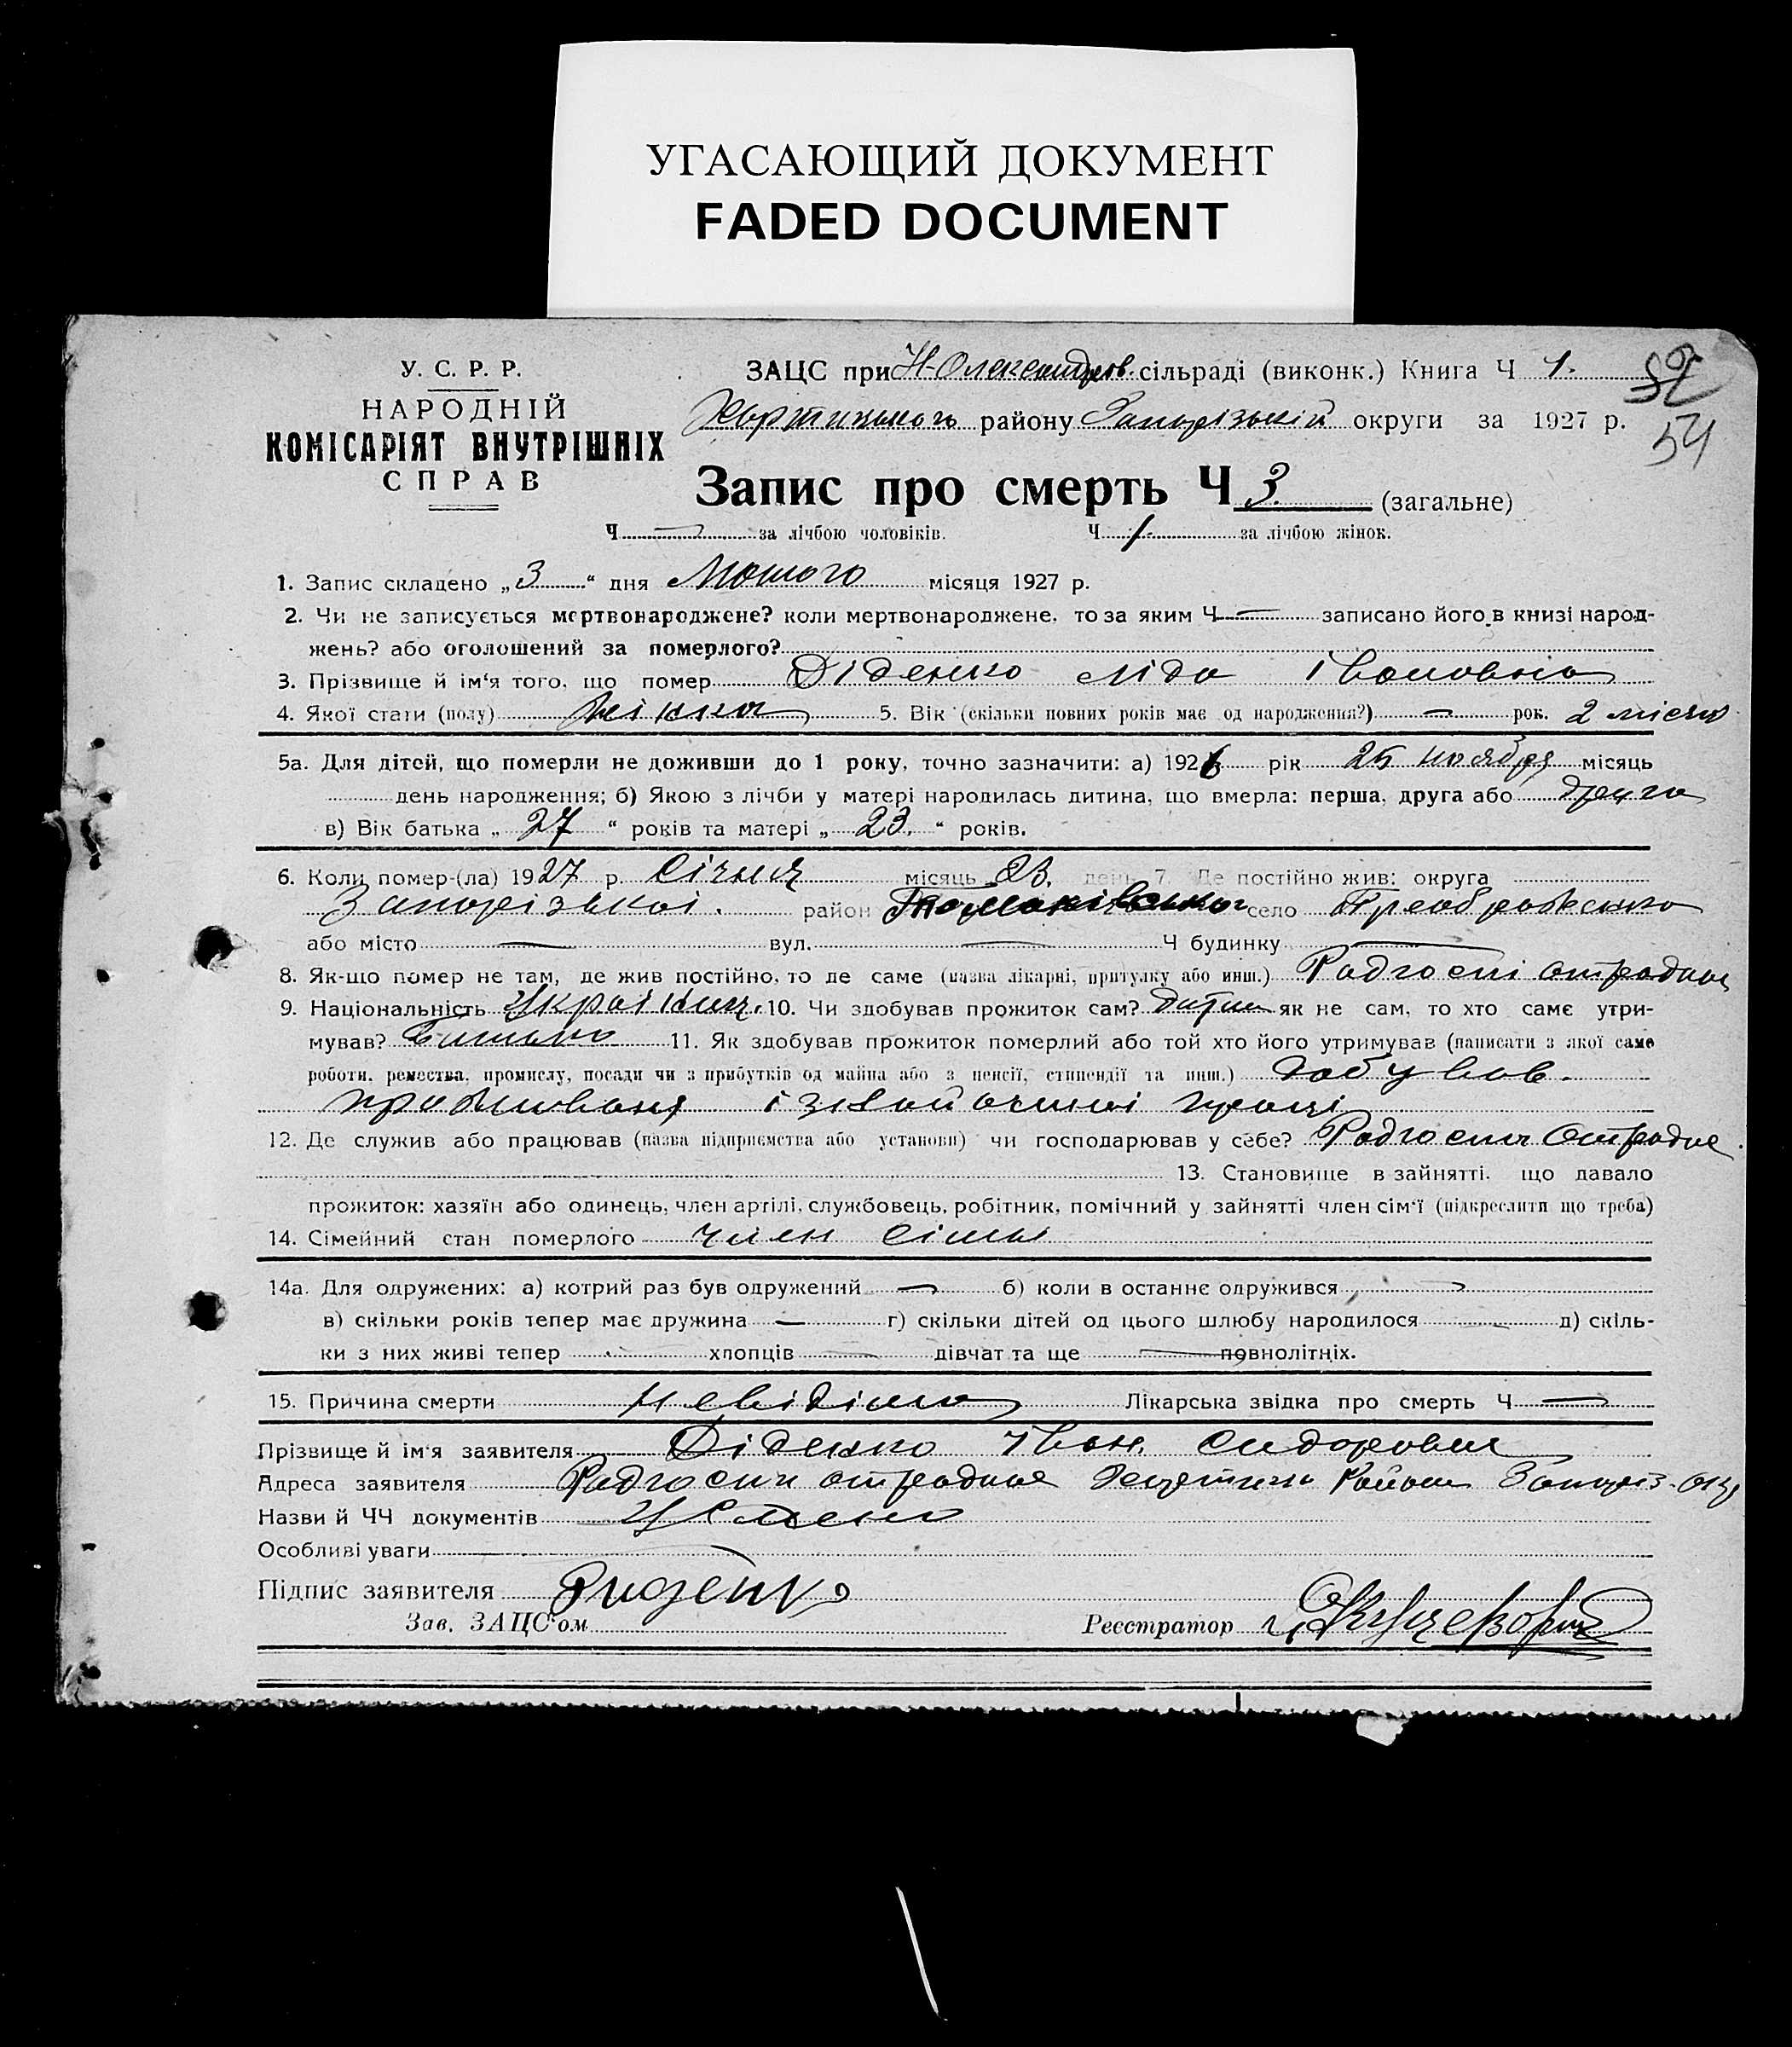 УГАСАЮЩИЙ ДОКУМЕНТ
FADED DOCUMENT
У. С. Р. Р.
НАРОДНІЙ
КОМІСАРІЯТ ВНУТРІШНІХ
СПРАВ
ЗАЦС при Н-Олександрів. сільраді (виконк.) Книга Ч 1.
52
Хортицького району Запорізькій округи за 1927 р.
54
Запис про смерть Ч 3 (загальне)
Ч — за лічбою чоловіків. Ч 1 за лічбою жінок.
1. Запис складено „ 3 “ дня Лютого місяця 1927 р.
2. Чи не записується мертвонароджене? коли мертвонароджене, то за яким Ч — записано його в книзі народ-
жень? або оголошений за померлого?
3. Прізвище й ім‘я того, що помер Діденко Ліда Івановна
4. Якої стати (полу) жінка 5. Вік (скільки повних років має од народження?) — рок. 2 місяц
5а. Для дітей, що померли не доживши до 1 року, точно зазначити: а) 1926 рік 25 ноября місяць
день народження; б) Якою з лічби у матері народилась дитина, що вмерла: перша, друга або друга
в) Вік батька „ 27 “ років та матері „ 23. “ років.
6. Коли помер-(ла) 1927 р. Січня місяць 23. день 7. Де постійно жив: округа
Запорізької. район Томаківсько село Преображенка
або місто — вул. — Ч будинку —
8. Як-що помер не там, де жив постійно, то де саме (назва лікарні, притулку або инш.) Радгоспі отрадном
9. Національність Українц. 10. Чи здобував прожиток сам? дитин як не сам, то хто саме утри-
мував? Батько 11. Як здобував прожиток померлий або той хто його утримував (написати з якої саме
роботи, ремества, промислу, посади чи з прибутків од майна або з пенсії, стипендії та инш.) добував.
проживаня і звой осиної праці
12. Де служив або працював (назва підприємства або установи) чи господарював у себе? Радгоспи Отрадне.
13. Становище в зайнятті, що давало
прожиток: хазяїн або одинець, член артілі, службовець, робітник, помічний у зайнятті член сім‘ї (підкреслити що треба)
14. Сімейний стан померлого член сімьї
14а. Для одружених: а) котрий раз був одружений — б) коли в останнє одружився —
в) скільки років тепер має дружина — г) скільки дітей од цього шлюбу народилося — д) скіль-
ки з них живі тепер хлопців — дівчат та ще — повнолітніх.
15. Причина смерти невідома Лікарська звідка про смерть Ч —
Прізвище й ім‘я заявителя Діденко Іван. Сидорович
Адреса заявителя Радгоспи отрадное Хортиць Району Запоріз. окр
Назви й ЧЧ документів
Особливі уваги —
Підпис заявителя Диденко
Зав. ЗАЦС‘ом Реєстратор